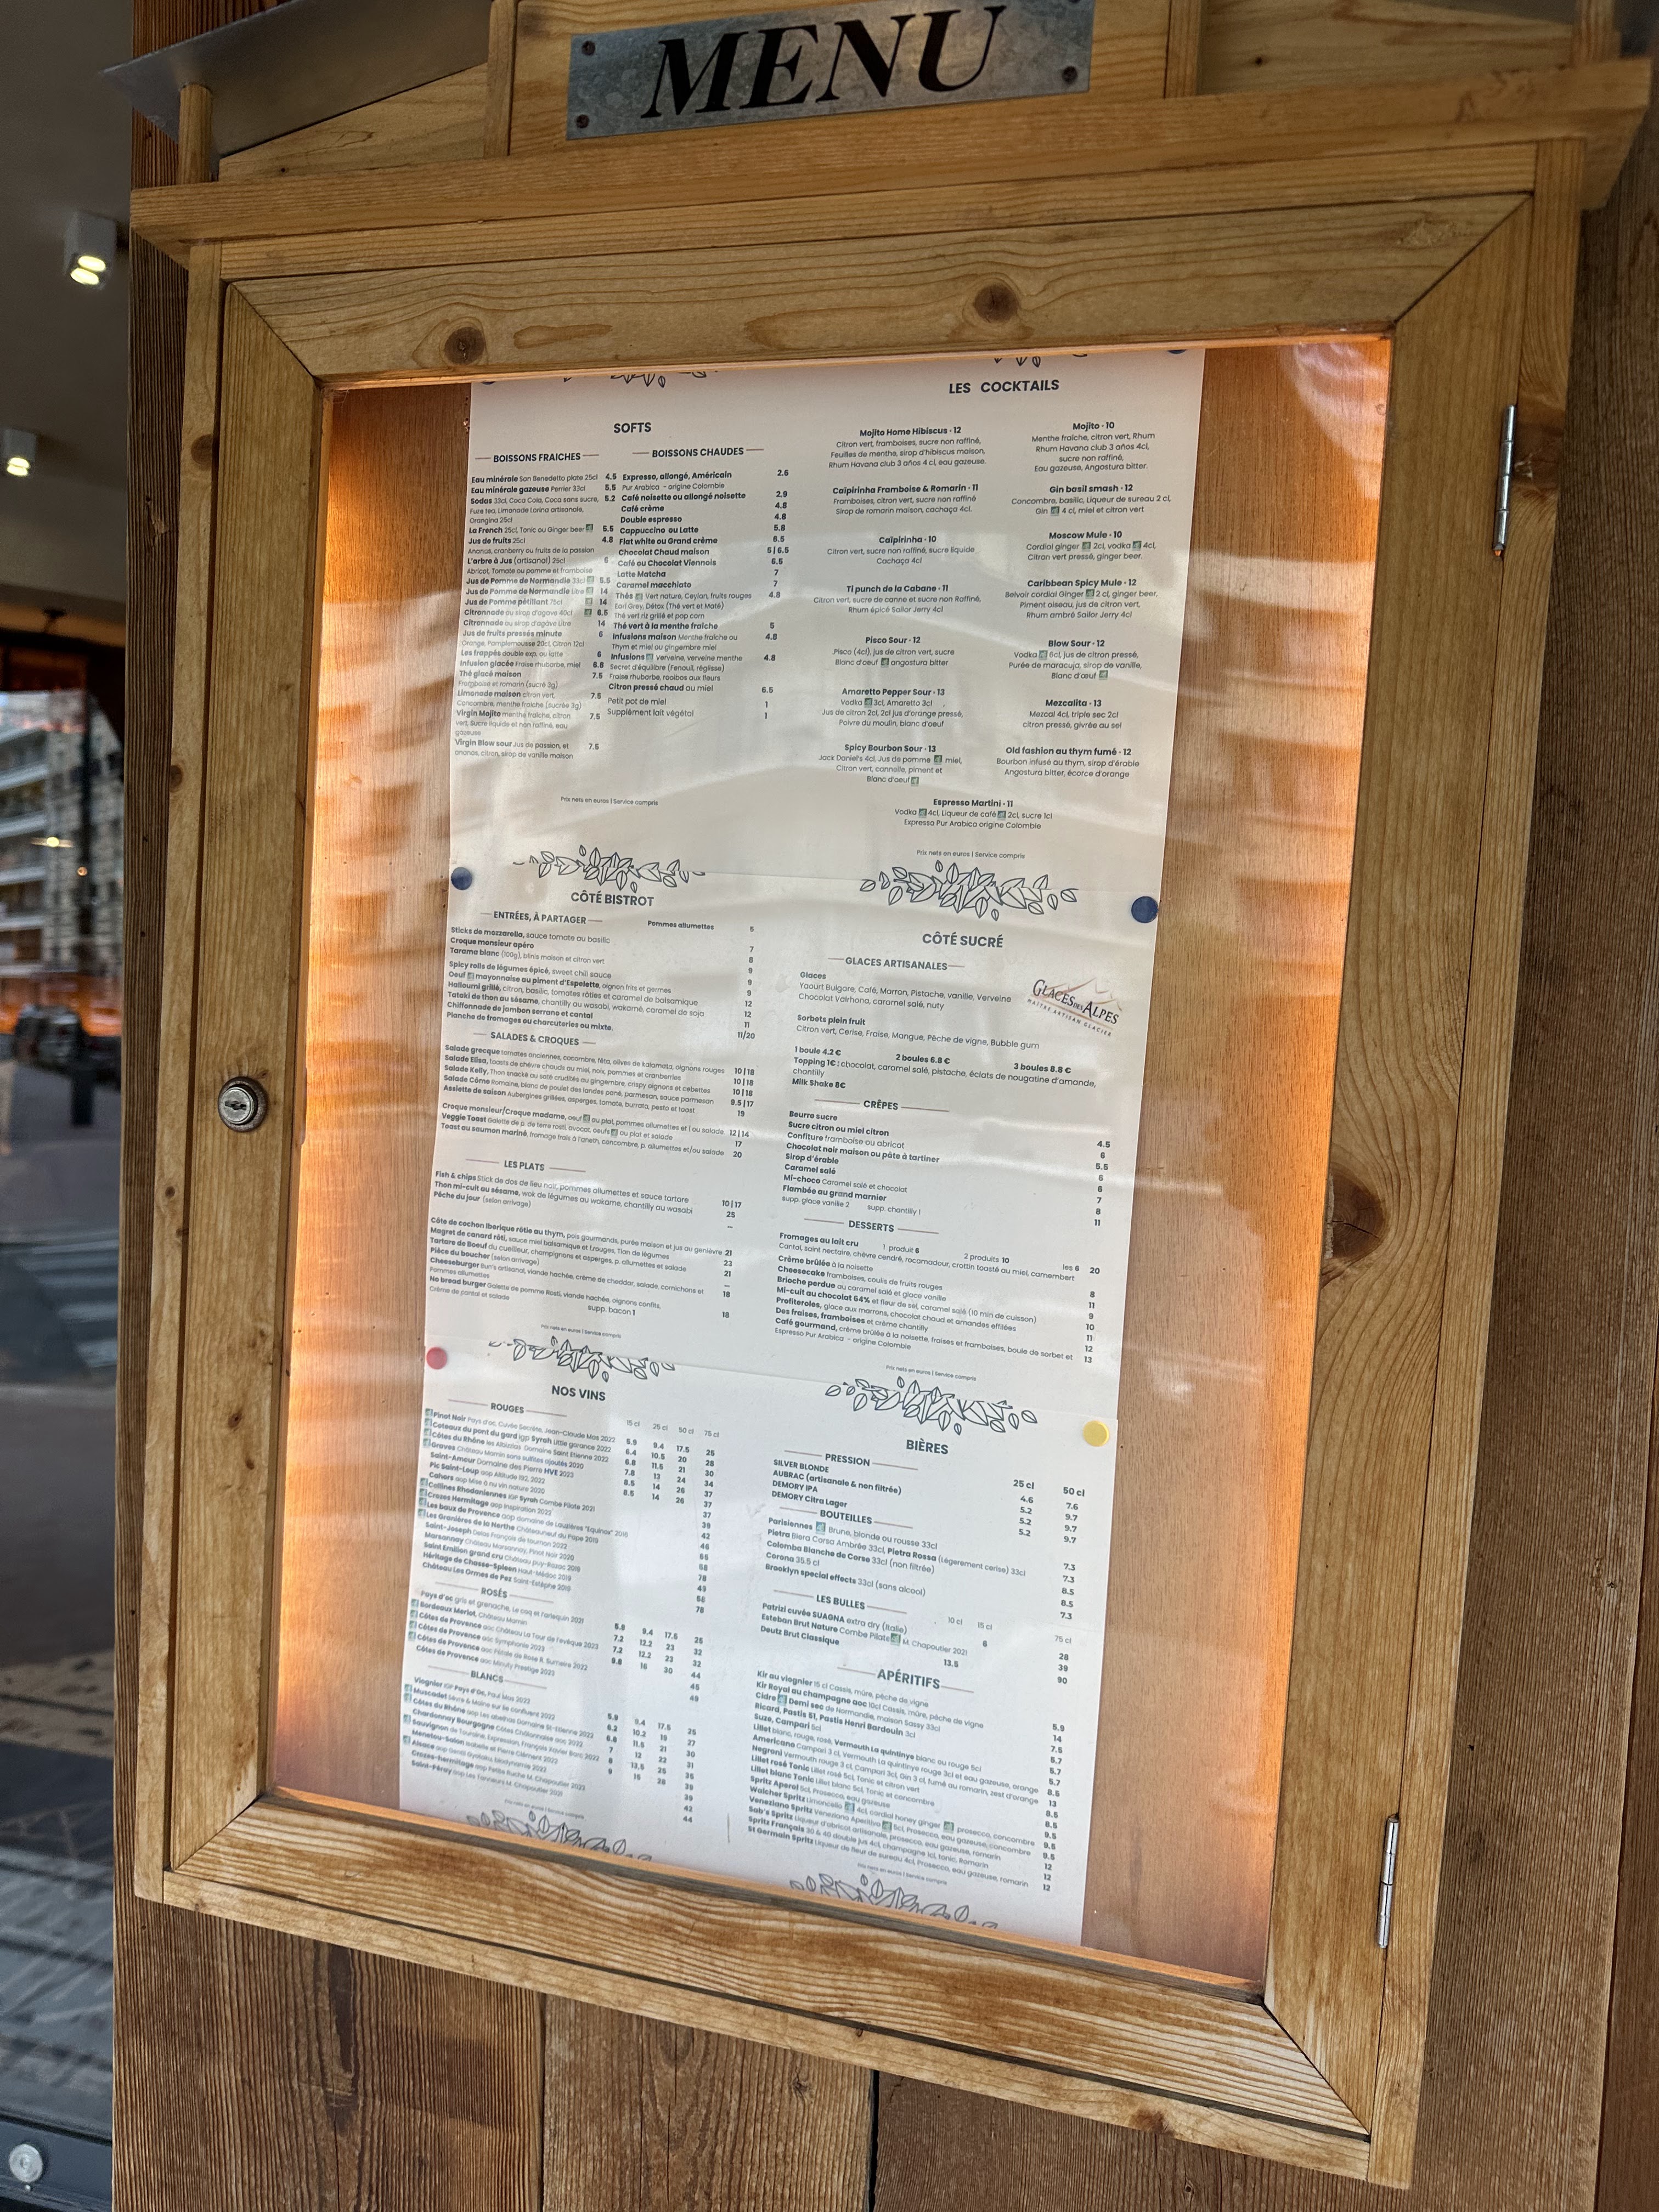 MENU
SOFTS
BOISSONS FRAICHES
Eau minérale San Benedetto plate 25cl 4.5
Eau minérale gazeuse Perrier 33cl 5.5
Sodas 33cl, Coca Cola, Coca sans sucre, 5.2
Fuze tea, Limonade Lorina artisanale,
Orangina 25cl
La French 25cl, Tonic ou Ginger beer 5.5
Jus de fruits 25cl 4.8
Ananas, cranberry ou fruits de la passion
L'arbre à Jus (artisanal) 25cl 6
Abricot, Tomate ou pomme et framboise
Jus de Pomme de Normandie 33cl 5.5
Jus de Pomme de Normandie Litre 14
Jus de Pomme pétillant 75cl 14
Citronnade au sirop d'agave 40cl 6.5
Citronnade au sirop d'agave Litre 14
Jus de fruits pressés minute 6
Orange, Pamplemousse 20cl, Citron 12cl
Les frappés double exp. ou latte 6
Infusion glacée Fraise rhubarbe, miel 6.8
Thé glacé maison 7.5
Framboise et romarin (sucré 3g)
Limonade maison citron vert, 7.5
Concombre, menthe fraîche (sucrée 3g)
Virgin Mojito menthe fraîche, citron 7.5
vert, Sucre liquide et non raffiné, eau
gazeuse
Virgin Blow sour Jus de passion, et 7.5
ananas, citron, sirop de vanille maison
BOISSONS CHAUDES
Expresso, allongé, Américain 2.6
Pur Arabica - origine Colombie
Café noisette ou allongé noisette 2.9
Café crème 4.8
Double espresso 4.8
Cappuccino ou Latte 5.8
Flat white ou Grand crème 6.5
Chocolat Chaud maison 5 | 6.5
Café ou Chocolat Viennois 6.5
Latte Matcha 7
Caramel macchiato 7
Thés Vert nature, Ceylan, fruits rouges 4.8
Earl Grey, Détox (Thé vert et Maté)
Thé vert riz grillé et pop corn
Thé vert à la menthe fraîche 5
Infusions maison Menthe fraîche ou 4.8
Thym et miel ou gingembre miel
Infusions verveine, verveine menthe 4.8
Secret d'équilibre (Fenouil, réglisse)
Fraise rhubarbe, rooibos aux fleurs
Citron pressé chaud au miel 6.5
Petit pot de miel 1
Supplément lait végétal 1
Prix nets en euros | Service compris
LES COCKTAILS
Mojito Home Hibiscus · 12
Citron vert, framboises, sucre non raffiné,
Feuilles de menthe, sirop d'hibiscus maison,
Rhum Havana club 3 años 4 cl, eau gazeuse.
Mojito · 10
Menthe fraîche, citron vert, Rhum
Rhum Havana club 3 años 4cl,
sucre non raffiné,
Eau gazeuse, Angostura bitter.
Caïpirinha Framboise & Romarin · 11
Framboises, citron vert, sucre non raffiné
Sirop de romarin maison, cachaça 4cl.
Gin basil smash · 12
Concombre, basilic, Liqueur de sureau 2 cl,
Gin 4 cl, miel et citron vert
Caïpirinha · 10
Citron vert, sucre non raffiné, sucre liquide
Cachaça 4cl
Moscow Mule · 10
Cordial ginger 2cl, vodka 4cl,
Citron vert pressé, ginger beer.
Ti punch de la Cabane · 11
Citron vert, sucre de canne et sucre non Raffiné,
Rhum épicé Sailor Jerry 4cl
Caribbean Spicy Mule · 12
Belvoir cordial Ginger 2 cl, ginger beer,
Piment oiseau, jus de citron vert,
Rhum ambré Sailor Jerry 4cl
Pisco Sour · 12
Pisco (4cl), jus de citron vert, sucre
Blanc d'oeuf angostura bitter
Blow Sour · 12
Vodka 6cl, jus de citron pressé,
Purée de maracuja, sirop de vanille,
Blanc d'œuf
Amaretto Pepper Sour · 13
Vodka 3cl, Amaretto 3cl
Jus de citron 2cl, 2cl jus d'orange pressé,
Poivre du moulin, blanc d'oeuf
Mezcalita · 13
Mezcal 4cl, triple sec 2cl
citron pressé, givrée au sel
Spicy Bourbon Sour · 13
Jack Daniel's 4cl, Jus de pomme miel,
Citron vert, cannelle, piment et
Blanc d'oeuf
Old fashion au thym fumé · 12
Bourbon infusé au thym, sirop d'érable
Angostura bitter, écorce d'orange
Espresso Martini · 11
Vodka 4cl, Liqueur de café 2cl, sucre 1cl
Expresso Pur Arabica origine Colombie
Prix nets en euros | Service compris
CÔTÉ BISTROT
ENTRÉES, À PARTAGER
Pommes allumettes 5
Sticks de mozzarella, sauce tomate au basilic 7
Croque monsieur apéro 8
Tarama blanc (100g), blinis maison et citron vert 9
Spicy rolls de légumes épicé, sweet chili sauce 9
Oeuf mayonnaise au piment d'Espelette, oignon frits et germes 9
Halloumi grillé, citron, basilic, tomates rôties et caramel de balsamique 12
Tataki de thon au sésame, chantilly au wasabi, wakamé, caramel de soja 12
Chiffonnade de jambon serrano et cantal 11
Planche de fromages ou charcuteries ou mixte. 11/20
SALADES & CROQUES
Salade grecque tomates anciennes, cocombre, féta, olives de kalamata, oignons rouges 10 | 18
Salade Elisa, toasts de chèvre chauds au miel, noix, pommes et cranberries 10 | 18
Salade Kelly, Thon snacké au saté crudités au gingembre, crispy oignons et cebettes 10 | 18
Salade Côme Romaine, blanc de poulet des landes pané, parmesan, sauce parmesan 9.5 | 17
Assiette de saison Aubergines grillées, asperges, tomate, burrata, pesto et toast 19
Croque monsieur/Croque madame, oeuf au plat, pommes allumettes et | ou salade. 12 | 14
Veggie Toast Galette de p. de terre rosti, avocat, oeufs au plat et salade 17
Toast au saumon mariné, fromage frais à l'aneth, concombre, p. allumettes et/ou salade 20
LES PLATS
Fish & chips Stick de dos de lieu noir, pommes allumettes et sauce tartare 10 | 17
Thon mi-cuit au sésame, wok de légumes au wakame, chantilly au wasabi 25
Pêche du jour (selon arrivage) —
Côte de cochon Iberique rôtie au thym, pois gourmands, purée maison et jus au genièvre 21
Magret de canard rôti, sauce miel balsamique et f.rouges, Tian de légumes 23
Tartare de Boeuf du cueilleur, champignons et asperges, p. allumettes et salade 21
Pièce du boucher (selon arrivage) —
Cheeseburger Bun's artisanal, viande hachée, crème de cheddar, salade, cornichons et 18
Pommes allumettes
No bread burger Galette de pomme Rosti, viande hachée, oignons confits, 18
Crème de cantal et salade
supp. bacon 1
Prix nets en euros | Service compris
CÔTÉ SUCRÉ
GLACES ARTISANALES
Glaces
Yaourt Bulgare, Café, Marron, Pistache, vanille, Verveine
Chocolat Valrhona, caramel salé, nuty
GLACES DES ALPES
MAITRE ARTISAN GLACIER
Sorbets plein fruit
Citron vert, Cerise, Fraise, Mangue, Pêche de vigne, Bubble gum
1 boule 4.2 € 2 boules 6.8 € 3 boules 8.8 €
Topping 1€ : chocolat, caramel salé, pistache, éclats de nougatine d'amande,
chantilly
Milk Shake 8€
CRÊPES
Beurre sucre 4.5
Sucre citron ou miel citron 6
Confiture framboise ou abricot 5.5
Chocolat noir maison ou pâte à tartiner 6
Sirop d'érable 6
Caramel salé 7
Mi-choco Caramel salé et chocolat 8
Flambée au grand marnier 11
supp. glace vanille 2 supp. chantilly 1
DESSERTS
Fromages au lait cru 1 produit 6 2 produits 10 les 6 20
Cantal, saint nectaire, chèvre cendré, rocamadour, crottin toasté au miel, camembert
Crème brûlée à la noisette 8
Cheesecake framboises, coulis de fruits rouges 11
Brioche perdue au caramel salé et glace vanille 9
Mi-cuit au chocolat 64% et fleur de sel, caramel salé (10 min de cuisson) 10
Profiteroles, glace aux marrons, chocolat chaud et amandes effilées 11
Des fraises, framboises et crème chantilly 12
Café gourmand, crème brûlée à la noisette, fraises et framboises, boule de sorbet et 13
Espresso Pur Arabica - origine Colombie
Prix nets en euros | Service compris
NOS VINS
ROUGES
15 cl 25 cl 50 cl 75 cl
Pinot Noir Pays d'oc, Cuvée Secrète, Jean-Claude Mas 2022 5.9 9.4 17.5 25
Coteaux du pont du gard igp Syrah Little garance 2022 6.4 10.5 20 28
Côtes du Rhône les Albizzias Domaine Saint Etienne 2022 6.8 11.5 21 30
Graves Château Mamin sans sulfites ajoutés 2020 7.8 13 24 34
Saint-Amour Domaine des Pierre HVE 2023 8.5 14 26 37
Pic Saint-Loup aop Altitude 192, 2022 8.5 14 26 37
Cahors aop Mise à nu vin nature 2020 37
Collines Rhodaniennes IGP Syrah Combe Pilate 2021 39
Crozes Hermitage aop Inspiration 2022 42
Les baux de Provence aop domaine de Lauzières "Equinox" 2016 46
Les Granières de la Nerthe Châteauneuf du Pape 2019
Saint-Joseph Delas François de tournon 2022
Marsannay Château Marsannay, Pinot Noir 2020
Saint Emilion grand cru Château puy-Razac 2019
Héritage de Chasse-Spleen Haut-Médoc 2019
Château Les Ormes de Pez Saint-Estèphe 2015 78
ROSÉS
Pays d'oc gris et grenache, Le coq et l'arlequin 2021 5.9 9.4 17.5 25
Bordeaux Merlot, Château Mamin 7.2 12.2 23 32
Côtes de Provence aoc Château La Tour de l'evêque 2023 7.2 12.2 23 32
Côtes de Provence aoc Symphonie 2023 9.8 16 30 44
Côtes de Provence aoc Pétale de Rose R. Sumeire 2022 45
Côtes de Provence aoc Minuty Prestige 2023 49
BLANCS
Viognier IGP Pays d'Oc, Paul Mas 2023 5.9 9.4 17.5 25
Muscadet Sèvre & Maine sur lie confluent 2022 6.2 10.2 19 27
Côtes du Rhône aop Les albizzias Domaine St-Etienne 2022 6.8 11.5 21 30
Chardonnay Bourgogne Côtes Chalonnaise aoc 2022 7 12 22 31
Sauvignon de Touraine, Expression, François Xavier Barc 2022 8 13.5 25 35
Menetou-Salon Isabelle et Pierre Clément 2022 9 15 28 39
Alsace aop Gentil Gyotaku, biodynamie 2022 39
Crozes-hermitage aop Petite Ruche M. Chapoutier 2022 42
Saint-Péray aop Les Tanneurs M. Chapoutier 2021 44
Prix nets en euros | Service compris
BIÈRES
PRESSION
25 cl 50 cl
SILVER BLONDE 4.6 7.6
AUBRAC (artisanale & non filtrée) 5.2 9.7
DEMORY IPA 5.2 9.7
DEMORY Citra Lager 5.2 9.7
BOUTEILLES
Parisiennes Brune, blonde ou rousse 33cl 7.3
Pietra Biera Corsa Ambrée 33cl, Pietra Rossa (Légerement cerise) 33cl 7.3
Colomba Blanche de Corse 33cl (non filtrée) 8.5
Corona 35.5 cl 8.5
Brooklyn special effects 33cl (sans alcool) 7.3
LES BULLES
10 cl 15 cl 75 cl
Patrizi cuvée SUAGNA extra dry (Italie) 6 28
Esteban Brut Nature Combe Pilate M. Chapoutier 2021 39
Deutz Brut Classique 13.5 90
APÉRITIFS
Kir au viognier 15 cl Cassis, mûre, pêche de vigne 5.9
Kir Royal au champagne aoc 10cl Cassis, mûre, pêche de vigne 14
Cidre Demi sec de Normandie, maison Sassy 33cl 7.5
Ricard, Pastis 51, Pastis Henri Bardouin 3cl 5.7
Suze, Campari 5cl 5.7
Lillet blanc, rouge, rosé, Vermouth La quintinye blanc ou rouge 5cl 5.7
Americano Campari 3 cl, Vermouth La quintinye rouge 3cl et eau gazeuse, orange 8.5
Negroni Vermouth rouge 3 cl, Campari 3cl, Gin 3 cl, fumé au romarin, zest d'orange 13
Lillet rosé Tonic Lillet rosé 5cl, Tonic et citron vert 8.5
Lillet blanc Tonic Lillet blanc 5cl, Tonic et concombre 8.5
Spritz Aperol 5cl, Prosecco, eau gazeuse 9.5
Walcher Spritz Limoncello 4cl, cordial honey ginger prosecco, concombre 9.5
Veneziano Spritz Veneziano Aperitivo 5cl, Prosecco, eau gazeuse, concombre 9.5
Sab's Spritz Liqueur d'abricot artisanale, prosecco, eau gazeuse, romarin 12
Spritz Français 30 & 40 double jus 4cl, champagne 1cl, tonic, Romarin 12
St Germain Spritz Liqueur de fleur de sureau 4cl, Prosecco, eau gazeuse, romarin 12
Prix nets en euros | Service compris